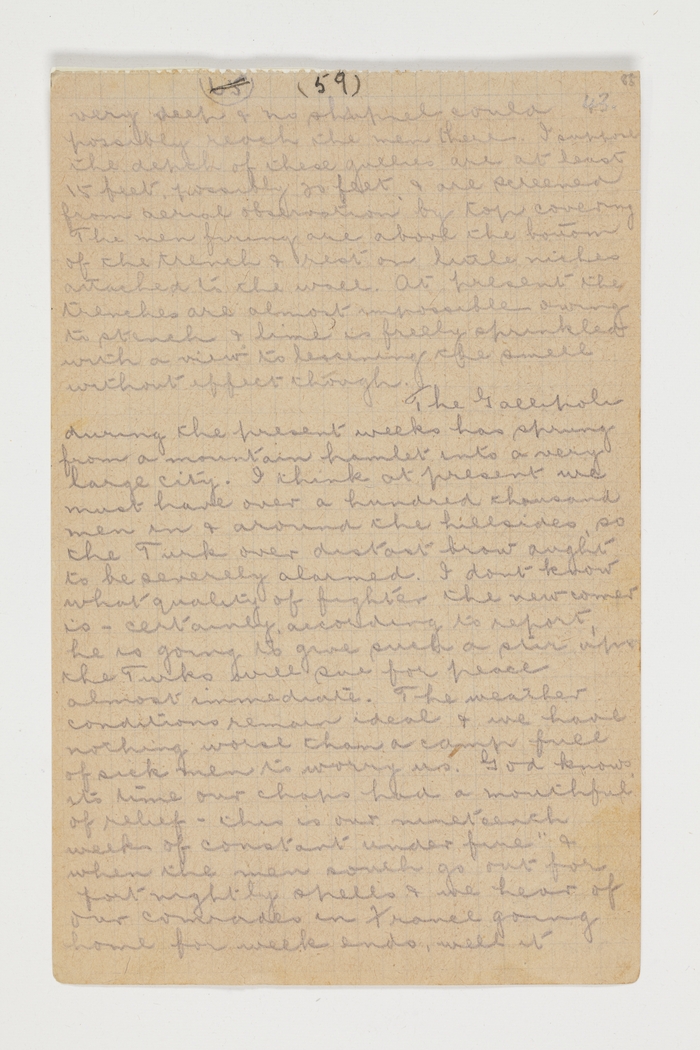 (59)
43.
88
very deep & no shrapnel could
possibly reach the men there. I suppose
the depth of these gullies are at least
15 feet, possibly 20 feet, & are screened
from aerial observation by top covering
The men firing are above the bottom
of the trench & rest on little niches
attached to the wall. At present the
trenches are almost impossible owing
to stench & lime is freely sprinkled
with a view to lessening the smell
without effect though.
The Gallipoli
during the present weeks has sprung
from a mountain hamlet into a very
large city. I think at present we
must have over a hundred thousand
men in & around the hillsides, so
the Turk over distast brow aught
to be severely alarmed. I dont know
what quality of fighter the new comer
is - certainly, according to report,
he is going to give such a stir up
the Turks will sue for peace
almost immediate. The weather
conditions remain ideal & we have
nothing worse than a camp full
of sick men to worry us. God knows
its time our chaps had a mouthful
of relief - this is our nineteenth
week of constant under fire" &
when the men south go out for
fortnightly spells & we hear of
our comrades in France going
home for week ends, well it